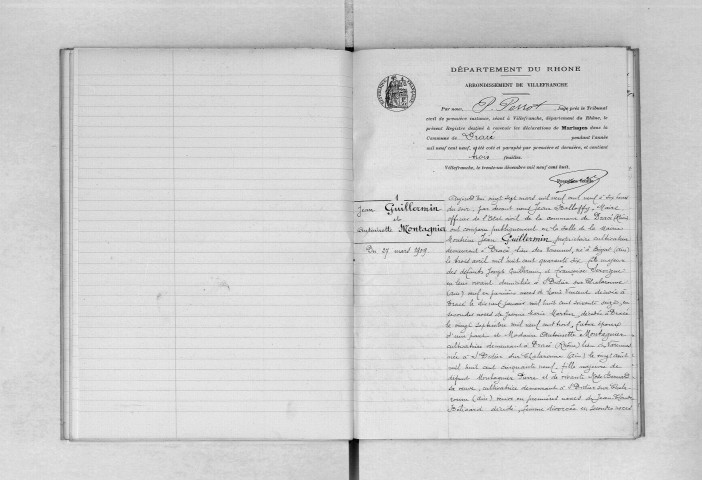 DÉPARTEMENT DU RHONE
ARRONDISSEMENT DE VILLEFRANCHE
Par nous, P. Perrot, Juge près le Tribunal
civil de première instance, séant à Villefranche, département du Rhône, le
présent Registre destiné à recevoir les déclarations de Mariages dans la
Commune de Dracé pendant l'année
mil neuf cent neuf, a été coté et paraphé par première et dernière, et contient
trois feuillets.
Villefranche, le trente-un décembre mil neuf cent huit.
1
Jean Guillermin
&
Antoinette Montagnier
Du 27 mars 1909
Aujourd'hui vingt sept mars mil neuf cent neuf à six heures
du soir, par devant nous Jean Maire
officier de l'Etat civil de la commune de Dracé Rhône
ont comparu publiquement en la salle de la Mairie
Monsieur Jean Guillermin propriétaire cultivateur
demeurant à Dracé lieu des né à (Ain)
le trois avril mil huit cent quarante six fils majeur
des défunts Joseph Guillermin et Françoise
en leur vivant domiciliés à St Didier sur Chalaronne
(Ain) veuf en premières noces de Vincend décédée à
Dracé le dix neuf janvier mil huit cent soixante onze, en
secondes noces de Jeanne Marie Mortier, décédée à Dracé
le vingt septembre mil neuf cent huit, futur époux
d'une part et Madame Antoinette Montagnier
cultivatrice demeurant à Dracé (Rhône) lieu
née à St Didier sur Chalaronne (Ain) le vingt août
mil huit cent cinquante neuf, fille majeure de
défunt Montagnier Pierre et de vivante
sa veuve, cultivatrice demeurant à St Didier sur Chala-
ronne (Ain) veuve en premières noces de Jean
décédé, femme divorcée en secondes noces